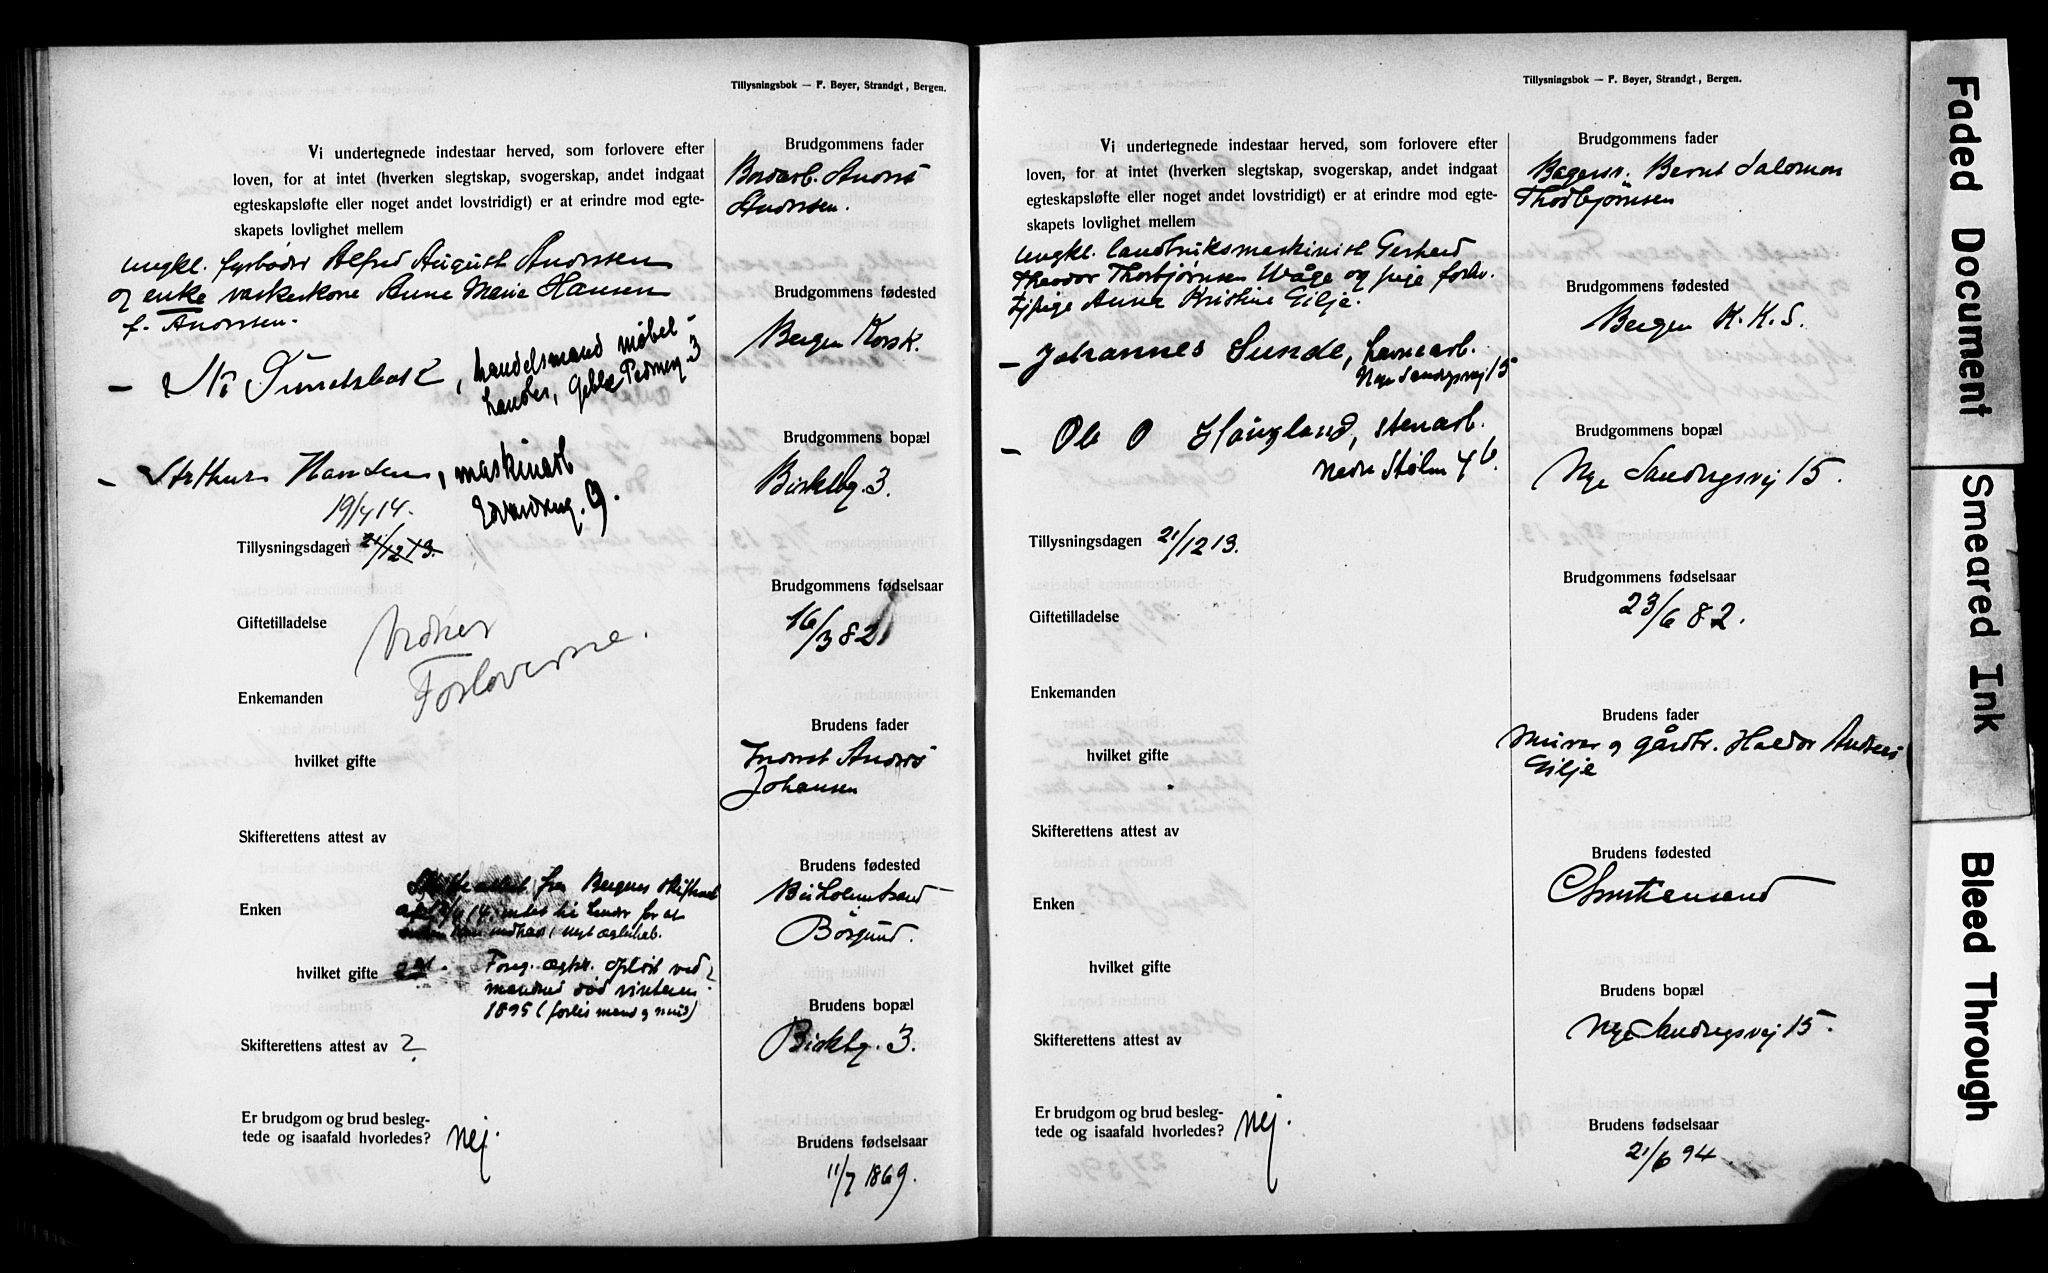 Tillysningsbok — F. Bøyer, Strandgt, Bergen.
Vi undertegnede indestaar herved, som forlovere efter
loven, for at intet (hverken slegtskap, svogerskap, andet indgaat
egteskapsløfte eller noget andet lovstridigt) er at erindre mod egte-
skapets lovlighet mellem
ungkl. fyrbøder Alfred August Andersen
og enke vaskerkone Anne Marie Hansen
f. Andersen.
handelsmand møbel-
3
— Arthur Hansen, maskinarb
9.
19/4 14.
Tillysningsdagen 21/12 13.
Giftetilladelse
Forloverne.
Enkemanden
hvilket gifte
Skifterettens attest av
attest fra Bergens skifteret
Enken
14. intet til hinder for at
nyt ægteskab.
hvilket gifte 2det. Foreg. ægtsk. opløst ved
mandens død vinteren
1895 (forlis mand og mus)
Skifterettens attest av ?
Er brudgom og brud besleg-
tede og isaafald hvorledes? Nej.
Brudgommens fader
Anders
Andersen.
Brudgommens fødested
Bergen Korsk.
Brudgommens bopæl
Birkebg. 3.
Brudgommens fødselsaar
16/3 82
Brudens fader
Inderst Anders
Johansen
Brudens fødested
Borgund.
Brudens bopæl
Birkebg. 3.
Brudens fødselsaar
11/7 1869.
Tillysningsbok — F. Bøyer, Strandgt, Bergen.
Vi undertegnede indestaar herved, som forlovere efter
loven, for at intet (hverken slegtskap, svogerskap, andet indgaat
egteskapsløfte eller noget andet lovstridigt) er at erindre mod egte-
skapets lovlighet mellem
ungkl. landbruksmaskinist Gerhard
Theodor Thorbjørnsen Våge og pige forhv.
tj.pige Anna Kristine Gilje.
— Johannes Sunde, havnearb.
Nye Sandvigsvej 15
— Ole O Haugland, stenarb.
Nedre Stølen 4b.
Tillysningsdagen 21/12 13.
Giftetilladelse
Enkemanden
hvilket gifte
Skifterettens attest av
Enken
hvilket gifte
Skifterettens attest av
Er brudgom og brud besleg-
tede og isaafald hvorledes? Nej.
Brudgommens fader
Bagersv. Bernt Salomon
Thorbjørnsen
Brudgommens fødested
Bergen K. K. S.
Brudgommens bopæl
Nye Sandvigsvej 15.
Brudgommens fødselsaar
23/6 82.
Brudens fader
Murer og gårdbr. Haldor Andreas
Gilje
Brudens fødested
Christiansand
Brudens bopæl
Nye Sandvigsvej 15.
Brudens fødselsaar
21/6 94
Faded Document
Smeared Ink
Bleed Through